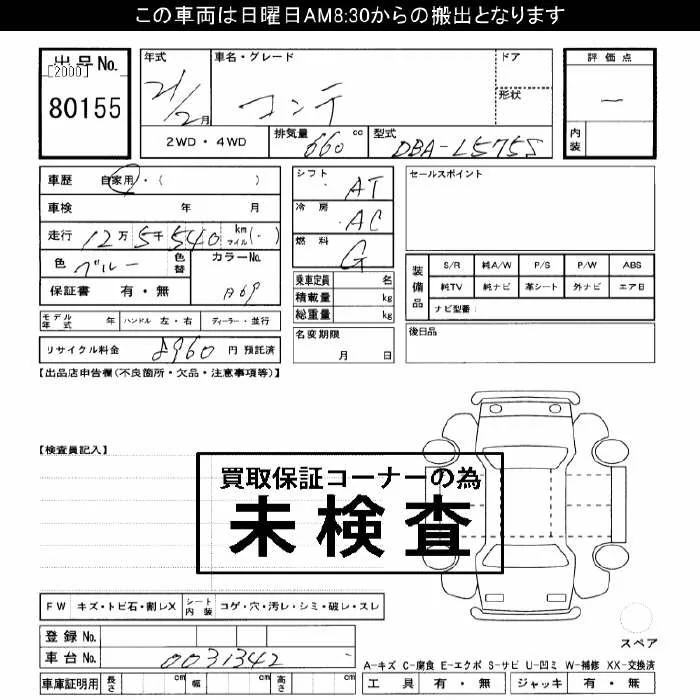 この車両は日曜日AM8:30からの搬出となります
出品No. 年式 車名・グレード ドア 評価点
[2000]
80155 21/2月 コンテ 形状 ー
内装
2WD・4WD 排気量 660 cc 型式 DBA-L575S
車歴 自家用・( ) シフト AT セールスポイント
車検 年 月 冷房 AC
走行 12万5千540 km マイル(・) 燃料 G
色 ブルー 色替 カラーNo. 乗車定員 名 装備品 S/R 純A/W P/S P/W ABS
保証書 有・無 B69 積載量 kg 純TV 純ナビ 革シート 外ナビ エアB
総重量 kg ナビ型番:
モデル年式 年 ハンドル 左・右 ディーラー・並行 名変期限 月 日 後日品
リサイクル料金 8960 円 預託済
【出品店申告欄(不良箇所・欠品・注意事項等)】
【検査員記入】
買取保証コーナーの為
未検査
FW キズ・トビ石・割レX シート内装 コゲ・穴・汚レ・シミ・破レ・スレ
登録No.
スペア
車台No. 0031342
A-キズ C-腐食 E-エクボ S-サビ U-凹ミ W-補修 XX-交換済
車庫証明用 長さ cm 幅 cm 高さ cm 工具 有・無 ジャッキ 有・無